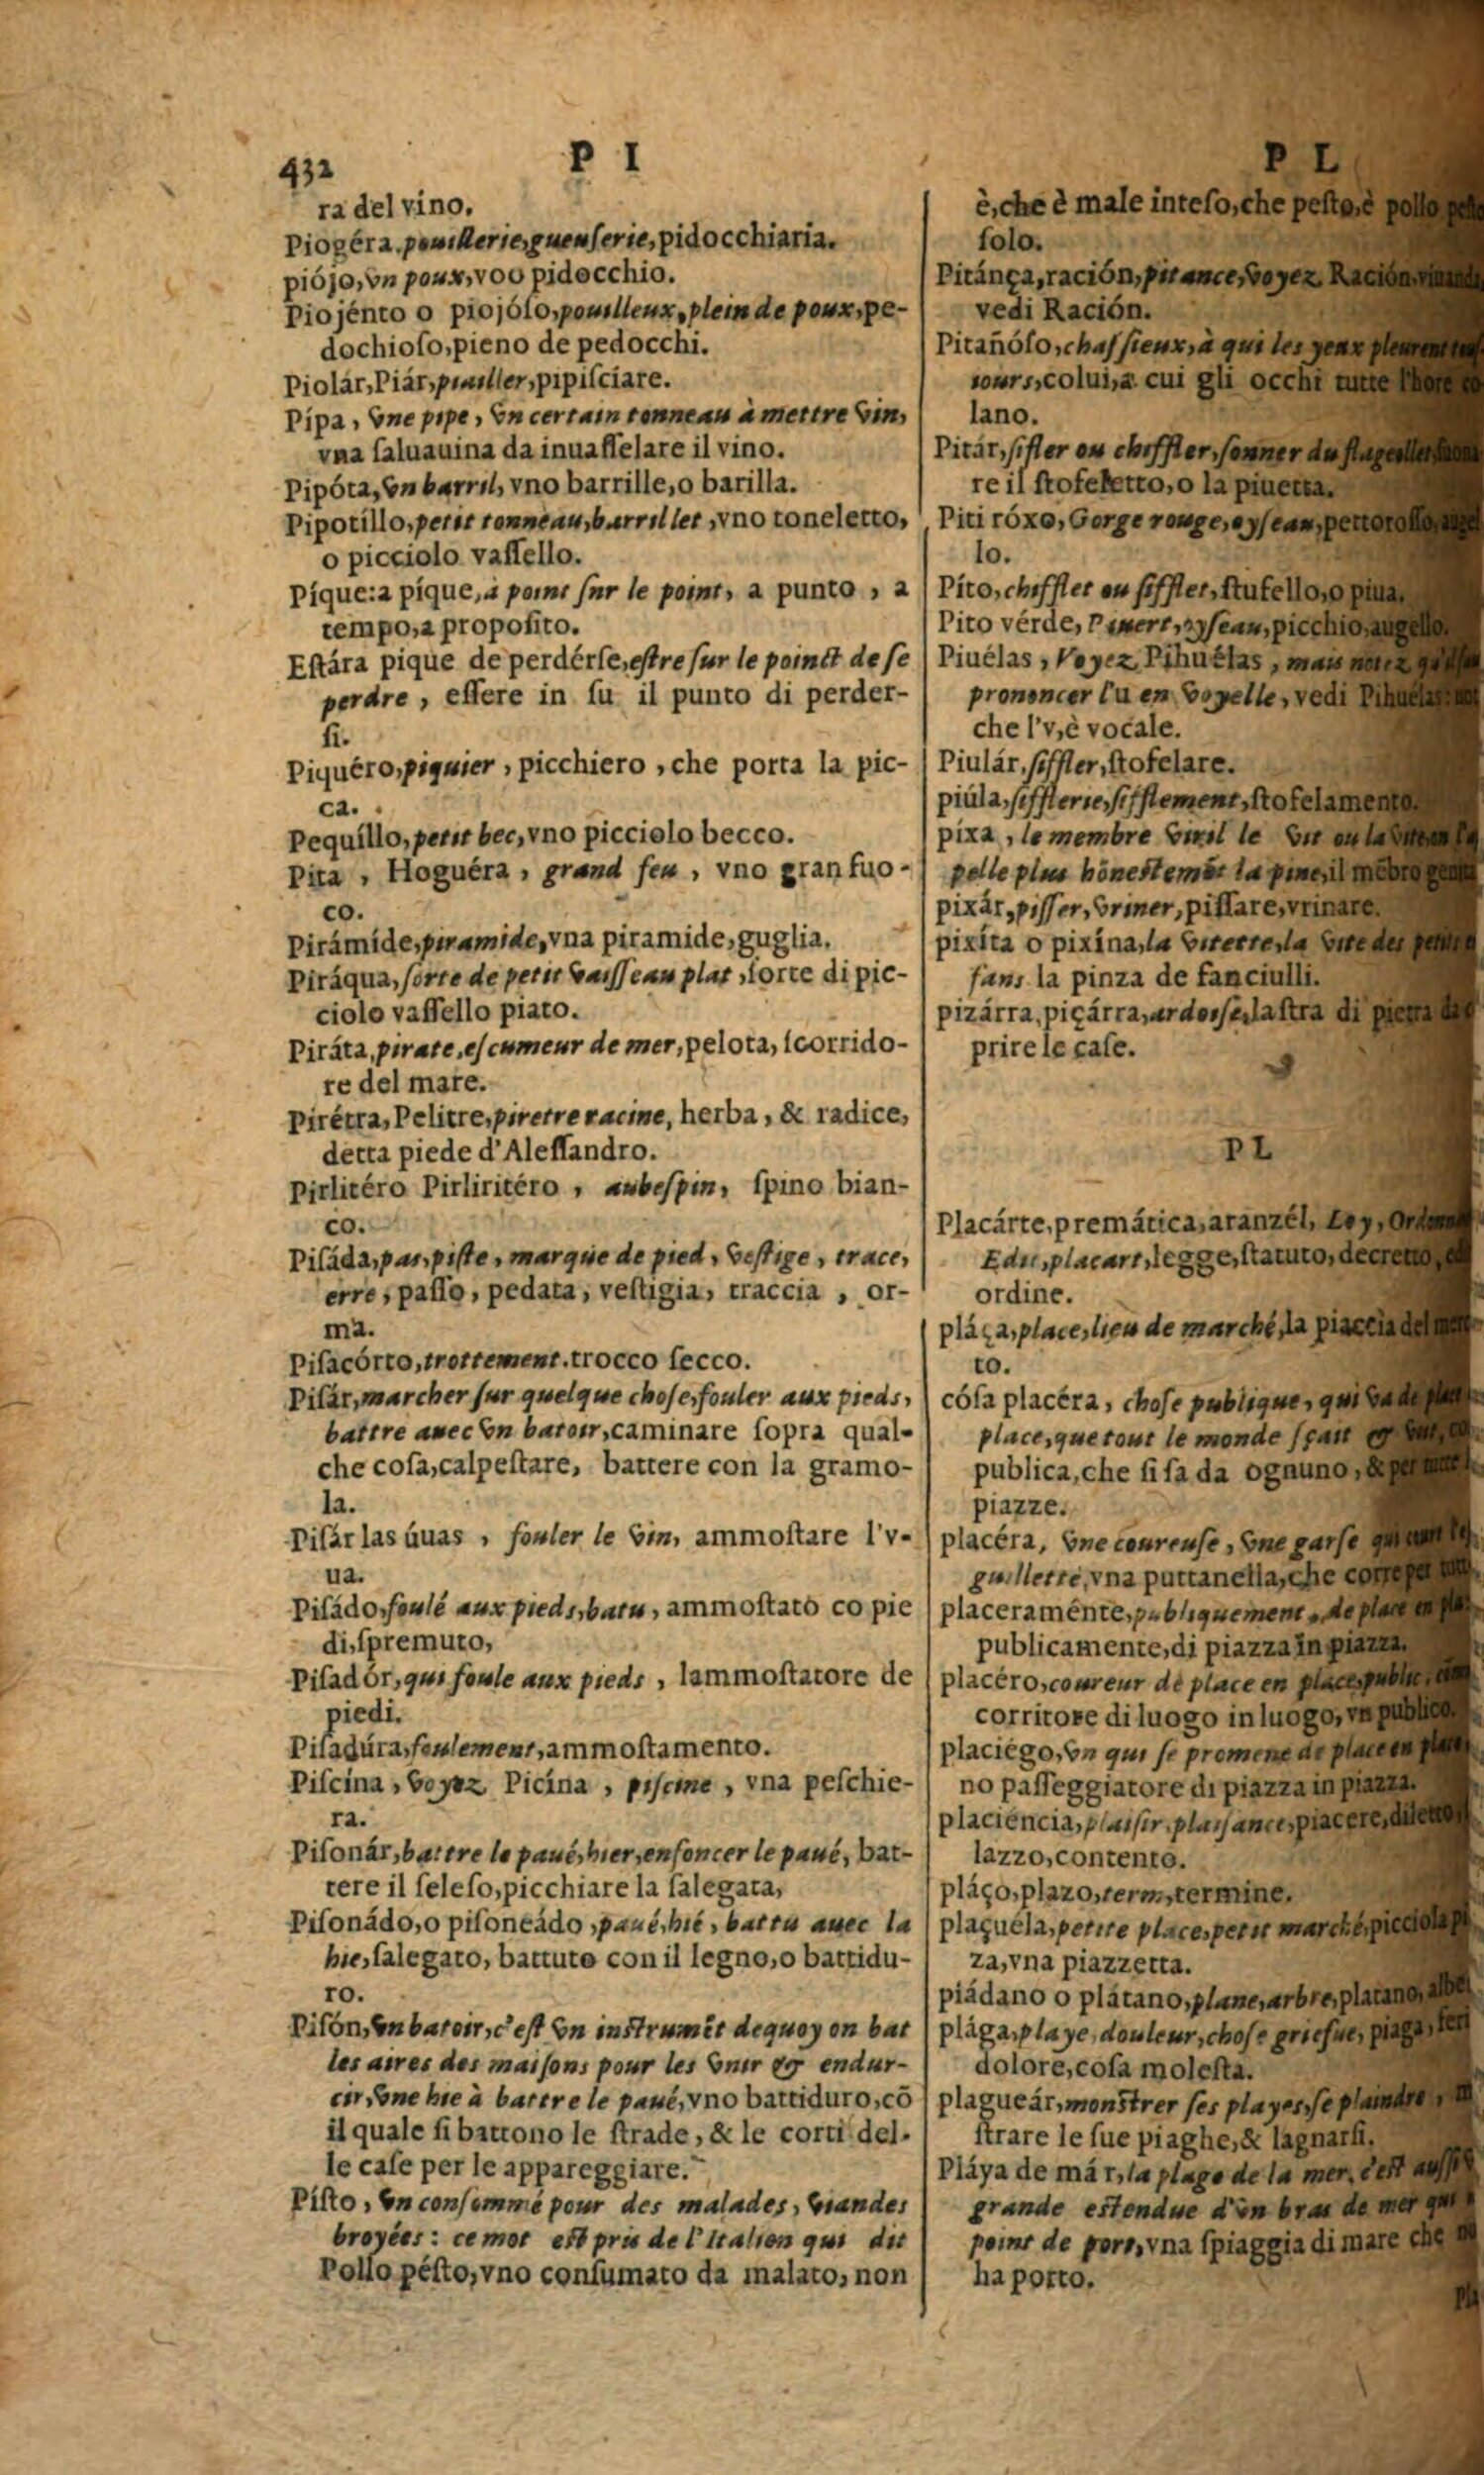 432
P I
ra del vino.
Piogéra, pouillerie, gueuserie, pidocchiaria.
piójo, vn poux, voo pidocchio.
Piojénto o piojóſo, pouilleux, plein de poux, pe-
dochioſo, pieno de pedocchi.
Piolár, Piár, piailler, pipiſciare.
Pípa, vne pipe, vn certain tonneau à mettre vin,
vna ſaluauina da inuaſſelare il vino.
Pipóta, vn barril, vno barrille, o barilla.
Pipotíllo, petit tonneau, barrillet, vno toneletto,
o picciolo vaſſello.
Píque: a píque, à point ſur le point, a punto, a
tempo, a propoſito.
Eſtára pique de perdérſe, eſtre ſur le poinct de ſe
perdre, eſſere in ſu il punto di perder-
ſi.
Piquéro, piquier, picchiero, che porta la pic-
ca.
Pequíllo, petit bec, vno picciolo becco.
Pita, Hoguéra, grand feu, vno gran fuo-
co.
Pirámide, piramide, vna piramide, guglia.
Piráqua, ſorte de petit vaiſſeau plat, ſorte di pic-
ciolo vaſſello piato.
Piráta, pirate, eſcumeur de mer, pelota, ſcorrido-
re del mare.
Pirétra, Pelitre, piretre racine, herba, & radice,
detta piede d'Aleſſandro.
Pirlitéro Pirliritéro, aubeſpin, ſpino bian-
co.
Piſáda, pas, piſte, marque de pied, veſtige, trace,
erre, paſſo, pedata, veſtigia, traccia, or-
ma.
Piſacórto, trottement. trocco ſecco.
Piſár, marcher ſur quelque choſe, fouler aux pieds,
battre auec vn batoir, caminare ſopra qual-
che coſa, calpeſtare, battere con la gramo-
la.
Piſár las úuas, fouler le vin, ammoſtare l'v-
ua.
Piſádo, foulé aux pieds, batu, ammoſtato co pie
di, ſpremuto,
Piſadór, qui foule aux pieds, lammoſtatore de
piedi.
Piſadúra, foulement, ammoſtamento.
Piſcína, voyez Picína, piſcine, vna peſchie-
ra.
Piſonár, battre le paué, hier, enfoncer le paué, bat-
tere il ſeleſo, picchiare la ſalegata,
Piſonádo, o piſoneádo, paué, hié, battu auec la
hie, ſalegato, battuto con il legno, o battidu-
ro.
Piſón, vn batoir, c'eſt vn inſtrumẽt dequoy on bat
les aires des maiſons pour les vnir & endur-
cir, vne hie à battre le paué, vno battiduro, cõ
il quale ſi battono le ſtrade, & le corti del-
le caſe per le appareggiare.
Piſto, vn conſommé pour des malades, viandes
broyées: ce mot eſt pris de l'Italien qui dit
Pollo péſto, vno conſumato da malato, non
P L
è, che è male inteſo, che peſto, è pollo
ſolo.
Pitánça, ración, pitance, voyez Ración,
vedi Ración.
Pitañóſo, chaſſieux, à qui les yeux pleurent
iours, colui, a cui gli occhi tutte l'hore co
lano.
Pitár, ſifler ou chiffler, ſonner du flageollet,
re il ſtofeletto, o la piuetta.
Piti róxo, Gorge rouge, oyſeau, pettoroſſo,
lo.
Píto, chifflet ou ſifflet, ſtufello, o piua.
Pito vérde, Piuert, oyſeau, picchio, augello.
Piuélas, Voyez Pihuélas, mais notez
prononcer l'u en voyelle, vedi Pihuélas:
che l'v, è vocale.
Piulár, ſiffler, ſtofelare.
piúla, ſifflerie, ſifflement, ſtofelamento.
píxa, le membre viril le vit ou la
pelle plus hõneſtemẽt la pine, il mẽbro
pixár, piſſer, vriner, piſſare, vrinare.
pixíta o pixína, la vitette, la vite des
fans la pinza de fanciulli.
pizárra, piçárra, ardoiſe, laſtra di pietra
prire le caſe.
PL
Placárte, premática, aranzél, Loy,
Edit, placart, legge, ſtatuto, decretto,
ordine.
pláça, place, lieu de marché, la piaccia del
to.
cóſa placéra, choſe publique, qui va de
place, que tout le monde ſçait &
publica, che ſi ſa da ognuno, & per
piazze.
placéra, vne coureuſe, vne garſe qui
guillette, vna puttanella, che corre per
placeraménte, publiquement, de place en
publicamente, di piazza in piazza.
placéro, coureur de place en place, public,
corritore di luogo in luogo, vn publico.
placiégo, vn qui ſe promene de place en place,
no paſſeggiatore di piazza in piazza.
placiéncia, plaiſir, plaiſance, piacere, diletto,
lazzo, contento.
pláço, plazo, term, termine.
plaçuéla, petite place, petit marché, picciola
za, vna piazzetta.
pládano o plátano, plane, arbre, platano,
plága, playe, douleur, choſe griefue, piaga,
dolore, coſa moleſta.
plagueár, monſtrer ſes playes, ſe plaindre,
ſtrare le ſue piaghe, & lagnarſi.
Pláya de már, la plage de la mer, c'eſt auſſi
grande eſtendue d'vn bras de mer qui
point de port, vna ſpiaggia di mare che
ha porto.
Pla